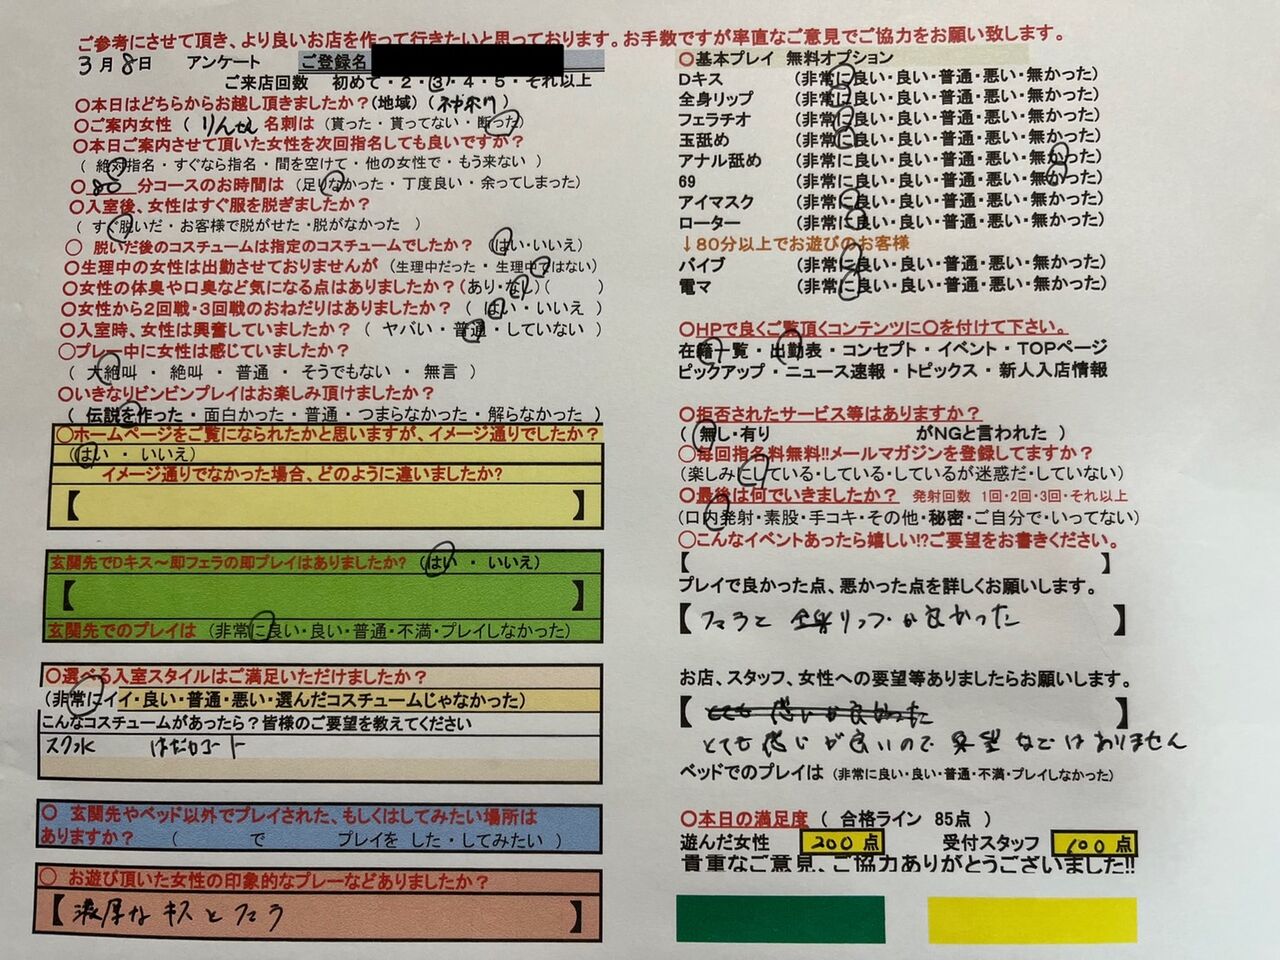 ご参考にさせて頂き、より良いお店を作って行きたいと思っております。お手数ですが率直なご意見でご協力をお願い致します。
3月8日 アンケート ご登録名
ご来店回数 初めて・2・3・4・5・それ以上
〇本日はどちらからお越し頂きましたか？(地域)（神奈川）
〇ご案内女性（りんせん 名刺は（貰った・貰ってない・断った）
〇本日ご案内させて頂いた女性を次回指名しても良いですか？
（絶対指名・すぐなら指名・間を空けて・他の女性で・もう来ない）
〇 80 分コースのお時間は（足りなかった・丁度良い・余ってしまった）
〇入室後、女性はすぐ服を脱ぎましたか？
（すぐ脱いだ・お客様で脱がせた・脱がなかった）
〇 脱いだ後のコスチュームは指定のコスチュームでしたか？（はい・いいえ）
〇生理中の女性は出勤させておりませんが（生理中だった・生理中ではない）
〇女性の体臭や口臭など気になる点はありましたか？(あり・なし)（ ）
〇女性から2回戦・3回戦のおねだりはありましたか？（はい・いいえ）
〇入室時、女性は興奮していましたか？（ヤバい・普通・していない）
〇プレー中に女性は感じていましたか？
（大絶叫・絶叫・普通・そうでもない・無言）
〇いきなりビンビンプレイはお楽しみ頂けましたか？
（伝説を作った・面白かった・普通・つまらなかった・解らなかった）
〇ホームページをご覧になられたかと思いますが、イメージ通りでしたか？
（はい・いいえ）
イメージ通りでなかった場合、どのように違いましたか？
【 】
玄関先でDキス～即フェラの即プレイはありましたか？（はい・いいえ）
【 】
玄関先でのプレイは（非常に良い・良い・普通・不満・プレイしなかった）
〇選べる入室スタイルはご満足いただけましたか？
（非常にイイ・良い・普通・悪い・選んだコスチュームじゃなかった）
こんなコスチュームがあったら？皆様のご要望を教えてください
スク水 はだかコート
〇 玄関先やベッド以外でプレイされた、もしくはしてみたい場所は
ありますか？（ で プレイを した・してみたい）
〇 お遊び頂いた女性の印象的なプレーなどありましたか？
【濃厚な キス と フェラ】
〇基本プレイ 無料オプション
Dキス （非常に良い・良い・普通・悪い・無かった）
全身リップ （非常に良い・良い・普通・悪い・無かった）
フェラチオ （非常に良い・良い・普通・悪い・無かった）
玉舐め （非常に良い・良い・普通・悪い・無かった）
アナル舐め （非常に良い・良い・普通・悪い・無かった）
69 （非常に良い・良い・普通・悪い・無かった）
アイマスク （非常に良い・良い・普通・悪い・無かった）
ローター （非常に良い・良い・普通・悪い・無かった）
↓80分以上でお遊びのお客様
バイブ （非常に良い・良い・普通・悪い・無かった）
電マ （非常に良い・良い・普通・悪い・無かった）
〇HPで良くご覧頂くコンテンツに〇を付けて下さい。
在籍一覧・出勤表・コンセプト・イベント・TOPページ
ピックアップ・ニュース速報・トピックス・新人入店情報
〇拒否されたサービス等はありますか？
（無し・有り がNGと言われた）
〇毎回指名料無料!!メールマガジンを登録してますか？
(楽しみにしている・している・しているが迷惑だ・していない)
〇最後は何でいきましたか？ 発射回数 1回・2回・3回・それ以上
（口内発射・素股・手コキ・その他・秘密・ご自分で・いってない）
〇こんなイベントあったら嬉しい!?ご要望をお書きください。
【 】
プレイで良かった点、悪かった点を詳しくお願いします。
【フェラと 全身リップ が 良かった】
お店、スタッフ、女性への要望等ありましたらお願いします。
【とても 感じが良かった】
とても感じが良いので 要望などはありません
ベッドでのプレイは（非常に良い・良い・普通・不満・プレイしなかった）
〇本日の満足度（合格ライン 85点）
遊んだ女性 200点 受付スタッフ 100点
貴重なご意見、ご協力ありがとうございました!!